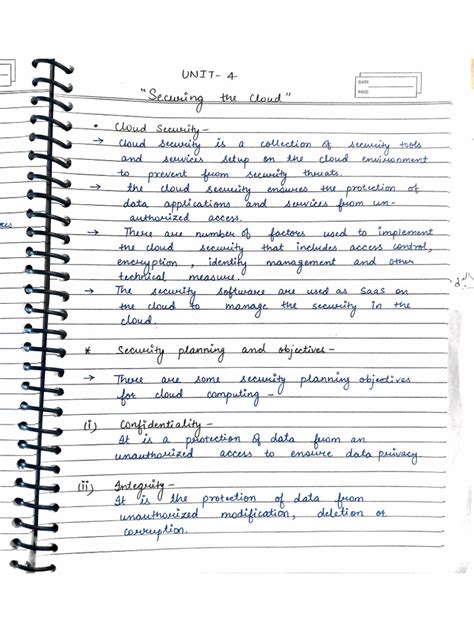 UNIT- 4
DATE
PAGE
"Securing the Cloud"
• Cloud Security –
→ Cloud security is a collection of security tools
and services setup on the cloud environment
to prevent from security threats.
→ the cloud security ensures the protection of
data applications and services from un-
authorized access.
→ There are number of factors used to implement
the cloud security that includes access control,
encryption, identity management and other
technical measure.
→ The security software are used as SaaS on
the cloud to manage the security in the
cloud.
* Security planning and objectives –
→ There are some security planning objectives
for cloud computing –
(i) Confidentiality –
It is a protection of data from an
unauthorized access to ensure data privacy
(ii) Integrity –
It is the protection of data from
unauthorized modification, deletion or
corruption.